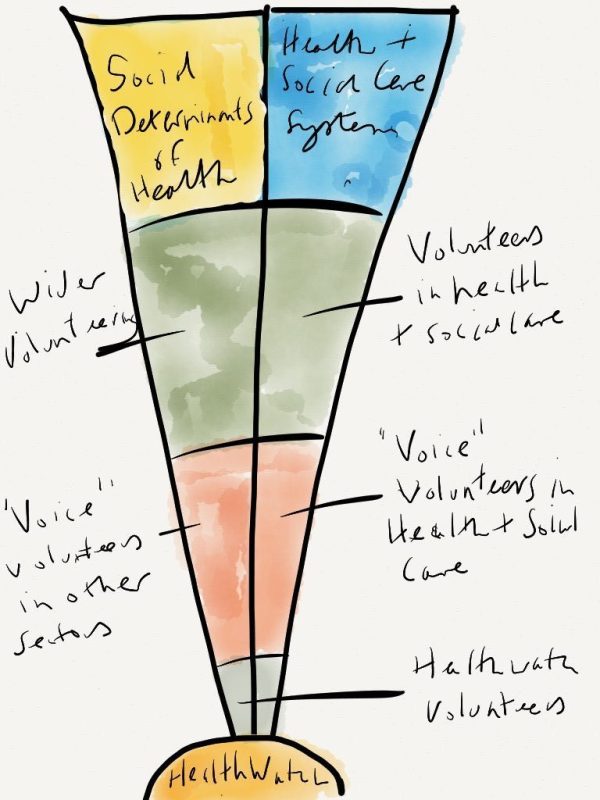 Social
Determinants
of
Health
Health +
Social Care
System
Wider
Volunteering
Volunteers
in health
+ social care
"Voice"
Volunteers in
Health + Social
Care
"Voice"
volunteers
in other
sectors
Healthwatch
Volunteers
HealthWatch